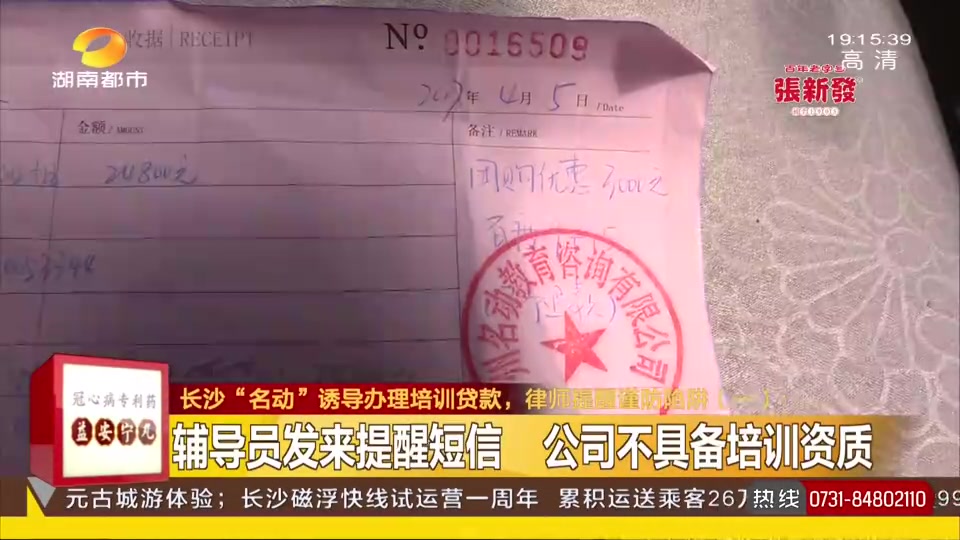 收据 | RECEIPT
Nº 0016509
19:15:39
高清
湖南都市
百年老字号
張新發
年 4月 5日 / Date
金额 / AMOUNT
备注 / REMARK
24800元
团购优惠 3000元
名动教育咨询有限公司
冠心病专利药
益安宁丸
长沙“名动”诱导办理培训贷款，律师提醒谨防陷阱（一）
辅导员发来提醒短信 公司不具备培训资质
元古城游体验；长沙磁浮快线试运营一周年 累积运送乘客267
热线 0731-84802110